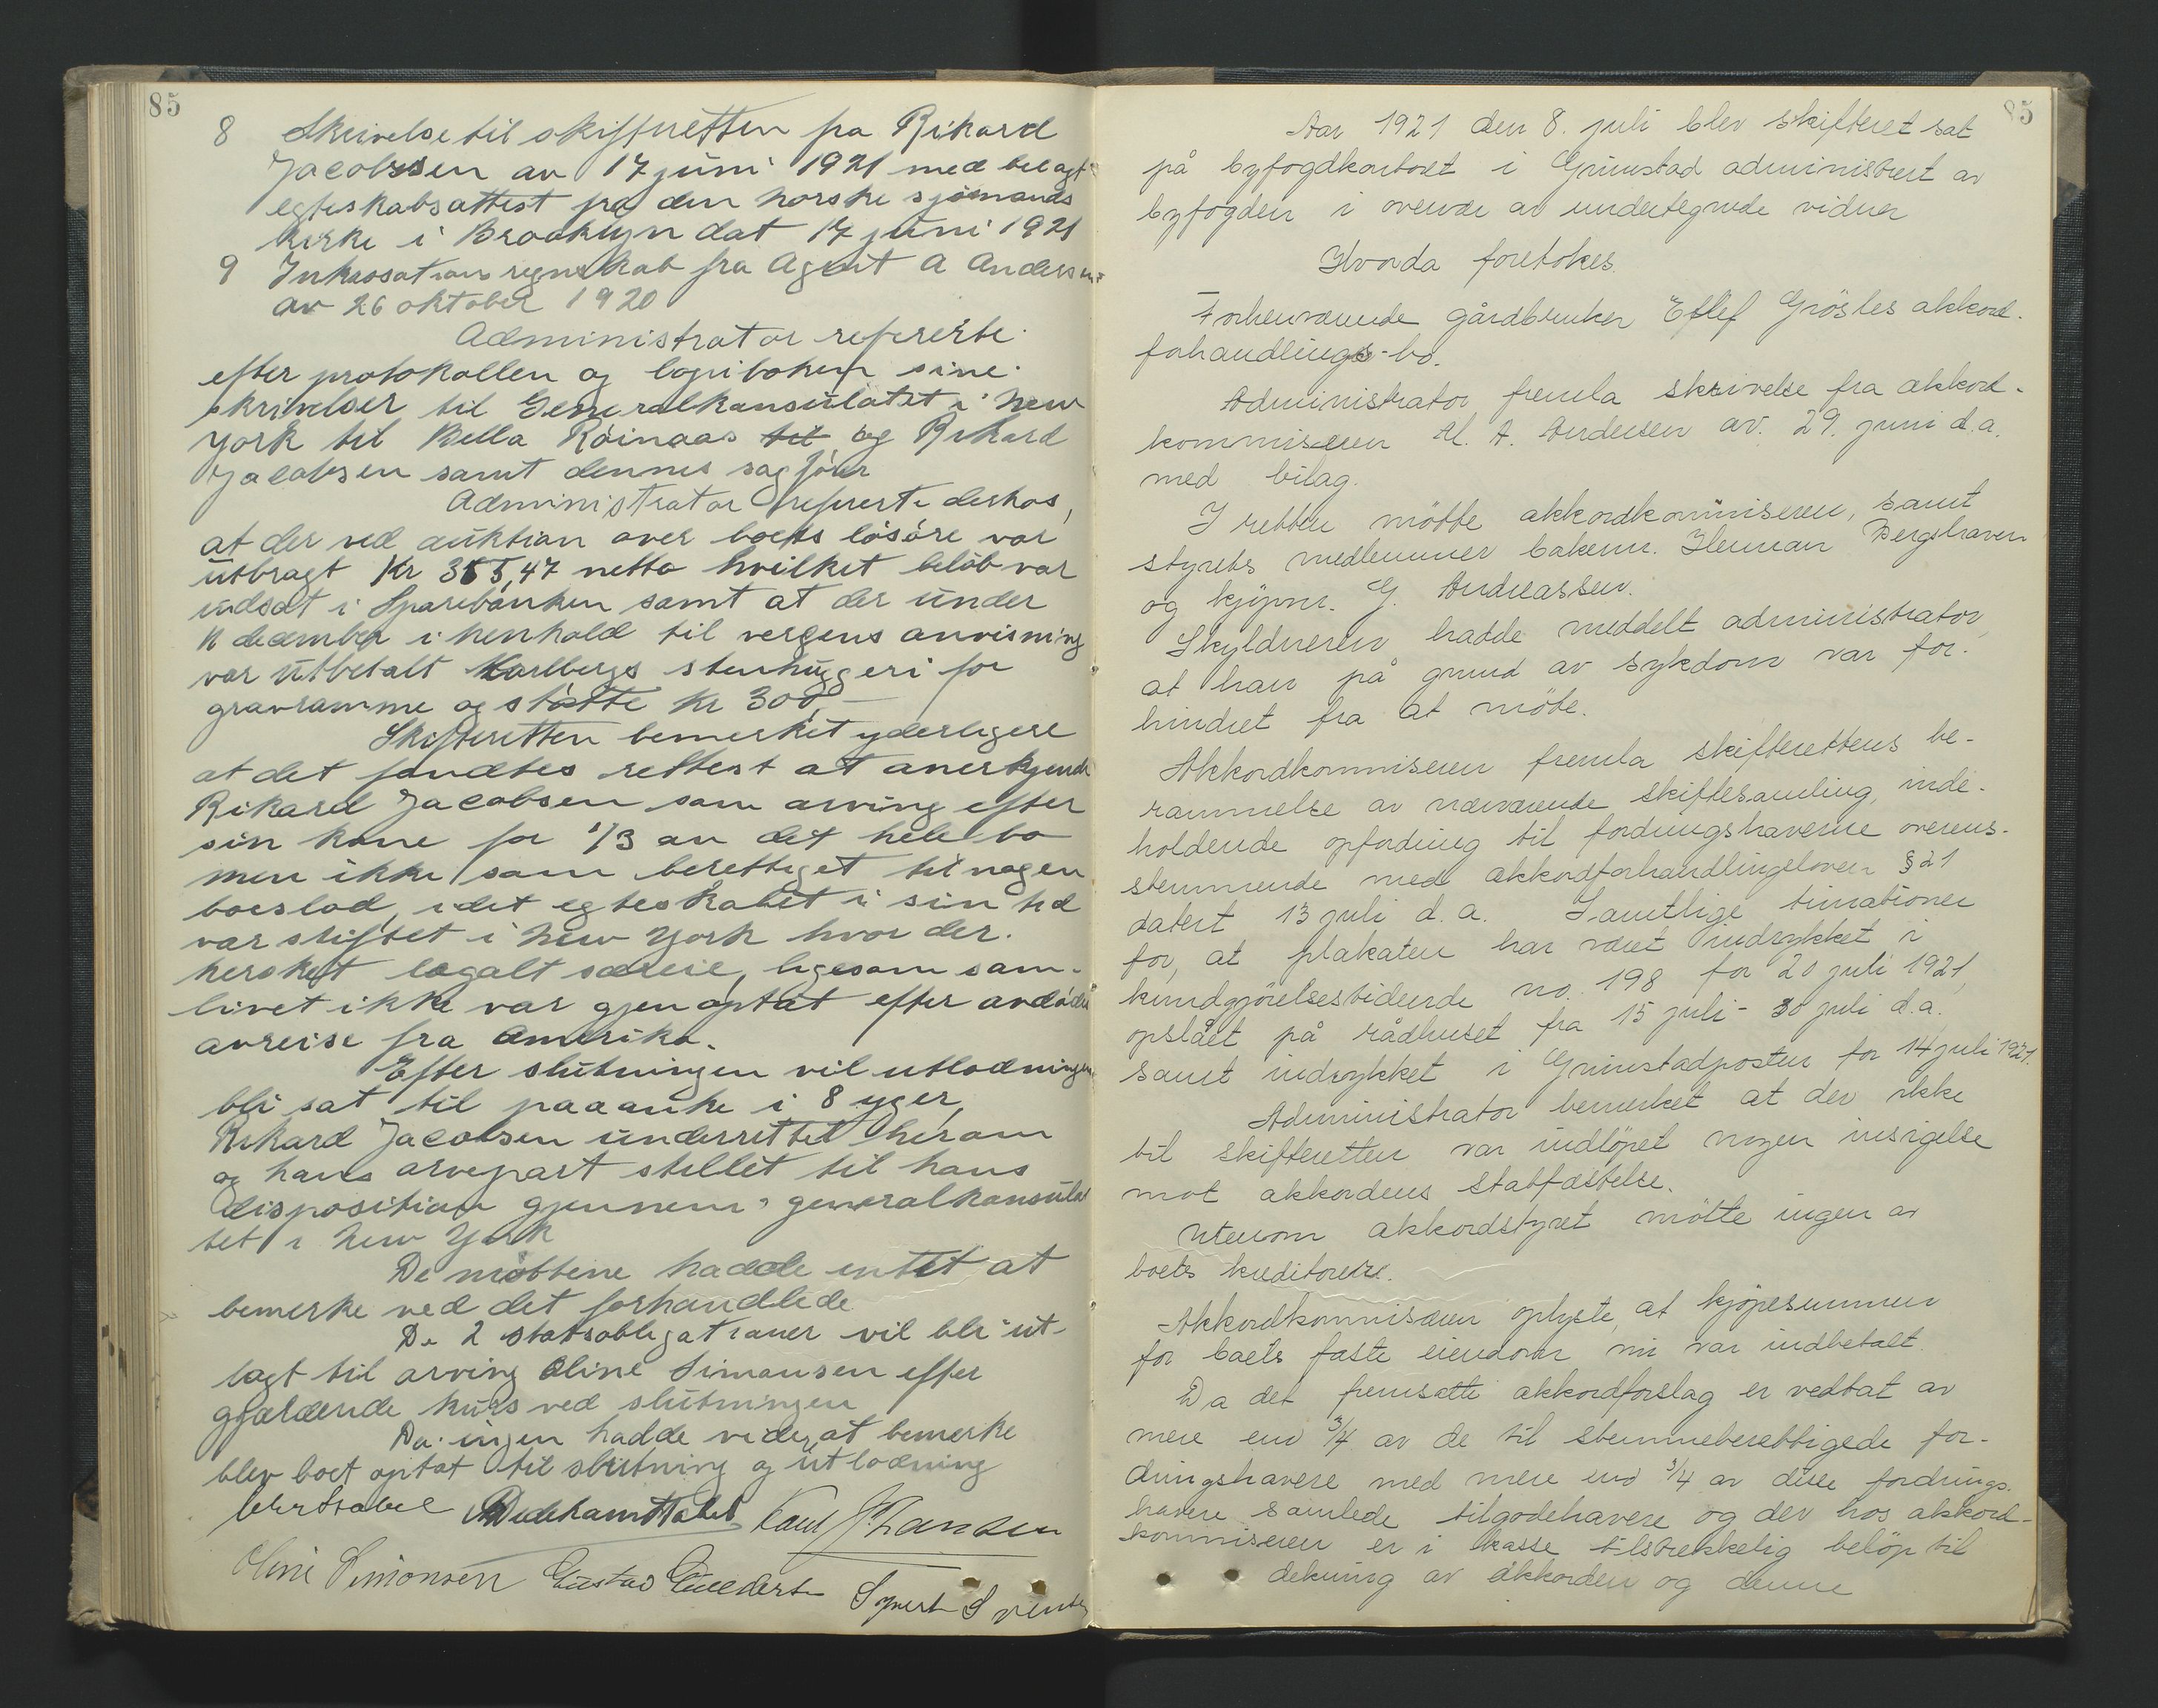 85
8 Skrivelse til skifteretten fra Rikard
Jacobsen av 17 juni 1921 med bilagt
egteskabsattest fra den norske sjømands
kirke i Brooklyn dat 17 juni 1921
9 Inkassations regnskab fra Agent A Andersen
av 26 oktober 1920
Administrator refererte
efter protokollen og kopiboken sine
skrivelser til Generalkonsulatet i New
York til Bella Roinaas til og Rikard
Jacobsen samt dennes sagfører
Administrator refererte derhos,
at der ved auktion over boets løsøre var
utbragt Kr 355,47 netto hvilket beløb var
indsat i Sparebanken samt at der under
11 december i henhold til vergens anvisning
var utbetalt Karlbergs stenhuggeri for
gravramme og støtte kr 300,-
Skifteretten bemerket yderligere
at det fandtes rettest at anerkjende
Rikard Jacobsen som arving efter
sin kone for 1/3 av det hele bo
men ikke som berettiget til nogen
boeslod, idet egteskabet i sin tid
var stiftet i New York hvor der
hersket legalt særeie, ligesom sam-
livet ikke var gjenoptat efter avdødes
avreise fra Amerika.
Efter slutningen vil utlodningen
bli sat til paaanke i 8 uger,
Rikard Jacobsen underrettet herom
og hans arvepart stillet til hans
disposition gjennem generalkonsula
tet i New York
De møttene hadde intet at
bemerke ved det forhandlede
De 2 statsobligationer vil bli ut-
lagt til arving Oline Simonsen efter
gjældende kurs ved slutningen
Da ingen hadde videre at bemerke
blev boet optat til slutning og utlodning
Karl J. Hansen
Oline Simonsen Gustav Gundersen Syvert
85
Aar 1921 den 8. juli blev skifteret sat
på byfogdkontoret i Grimstad administrert av
byfogden i overvær av undertegnede vidner
Hvorda foretokes
Forhenværende gårdbruker Eflef Grøsles akkord-
forhandlings-bo.
Administrator fremla skrivelse fra akkord-
kommisæren Al. A. Andersen av. 29. juni d.a.
med bilag.
I retten møtte akkordkommisæren, samt
styrets medlemmer bakerm. Herman Bergshaven
og kjøpm. G. Andreassen.
Skyldneren hadde meddelt administrator,
at han på grund av sykdom var for-
hindret fra at møte.
Akkordkommisæren fremla skifterettens be-
rammelse av nærværende skiftesamling, inde-
holdende opfordring til fordringshaverne overens-
stemmende med akkordforhandlingsloven § 21
datert 13 juli d.a. Samtlige
for, at plakaten har været indrykket i
kundgjørelsestidende no. 198 for 20 juli 1921,
opslået på rådhuset fra 15 juli - 30 juli d.a.
samt indrykket i Grimstadposten for 14 juli 1921.
Administrator bemerket at der ikke
til skifteretten var indløpet nogen insigelse
mot akkordens statfæstelse.
Utenom akkordstyret møtte ingen av
boets kreditorer.
Akkordkommisæren oplyste, at kjøpesummen
for boets faste eiendom nu var indbetalt.
Da det fremsatte akkordforslag er vedtat av
mere end 3/4 av de til stemmeberettigede for-
dringshavere med mere end 3/4 av disse fordrings-
havere samlede tilgodehavere og der hos akkord-
kommisæren er i kasse tilstrekkelig beløp til
dekning av akkorden og denne